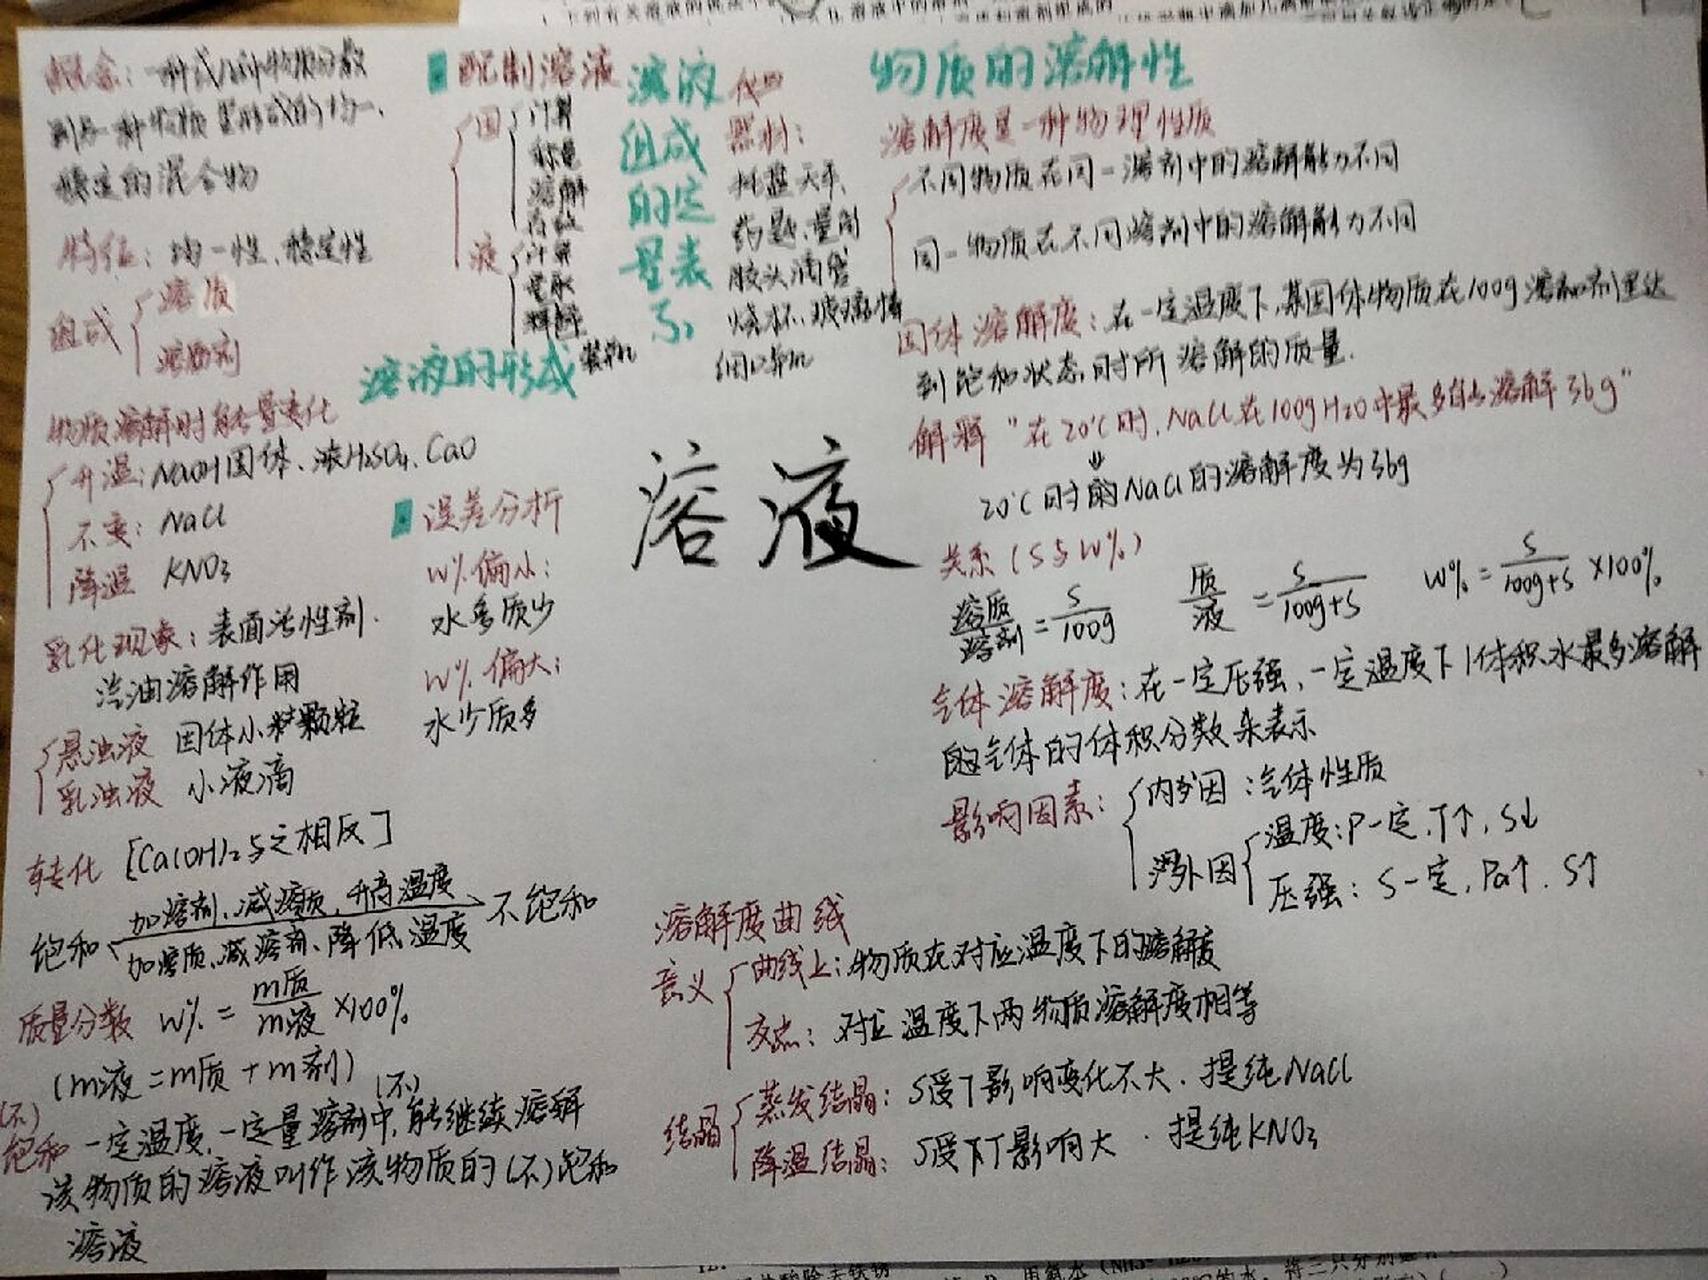 概念：一种或几种物质分散
到另一种物质里形成的均一、
稳定的混合物
特征：均一性、稳定性
组成
溶质
溶剂
溶液的形成
物质溶解时能量变化
升温：NaOH固体、浓H2SO4、CaO
不变：NaCl
降温 KNO3
乳化现象：表面活性剂.
汽油溶解作用
悬浊液 固体小颗粒
乳浊液 小液滴
转化 [Ca(OH)2与之相反]
饱和
加溶剂、减溶质、升高温度
加溶质、减溶剂、降低温度
不饱和
质量分数 w% = m质/m液 ×100%
(m液=m质+m剂)
(不)
(不)
饱和 一定温度,一定量溶剂中,能继续溶解
该物质的溶液叫作该物质的(不)饱和
溶液
配制溶液
固
计算
称量
溶解
存放
液
计算
量取
装瓶
误差分析
w%偏小：
水多质少
w%偏大：
水少质多
溶液
组成
的定
量表
示
仪器
托盘天平、
药匙、量筒
胶头滴管
烧杯、玻璃棒
细口瓶
溶液
物质的溶解性
溶解度是一种物理性质
不同物质在同一溶剂中的溶解能力不同
同一物质在不同溶剂中的溶解能力不同
固体溶解度：在一定温度下,某固体物质在100g溶剂里达
到饱和状态时所溶解的质量.
解释"在20℃时,NaCl在100gH2O中最多能溶解36g"
⇓
20℃时的NaCl的溶解度为36g
关系(S与w%)
溶质/溶剂 = S/100g 质/液 = S/100g+S w% = S/100g+S ×100%
气体溶解度：在一定压强、一定温度下1体积水最多溶解
的气体的体积分数来表示
影响因素：
内因：气体性质
外因
温度：P一定,T↑,S↓
压强：S一定,Pa↑.S↑
溶解度曲线
意义
曲线上：物质在对应温度下的溶解度
交点：对应温度下两物质溶解度相等
结晶
蒸发结晶：S受T影响变化不大.提纯NaCl
降温结晶：S受T影响大.提纯KNO3